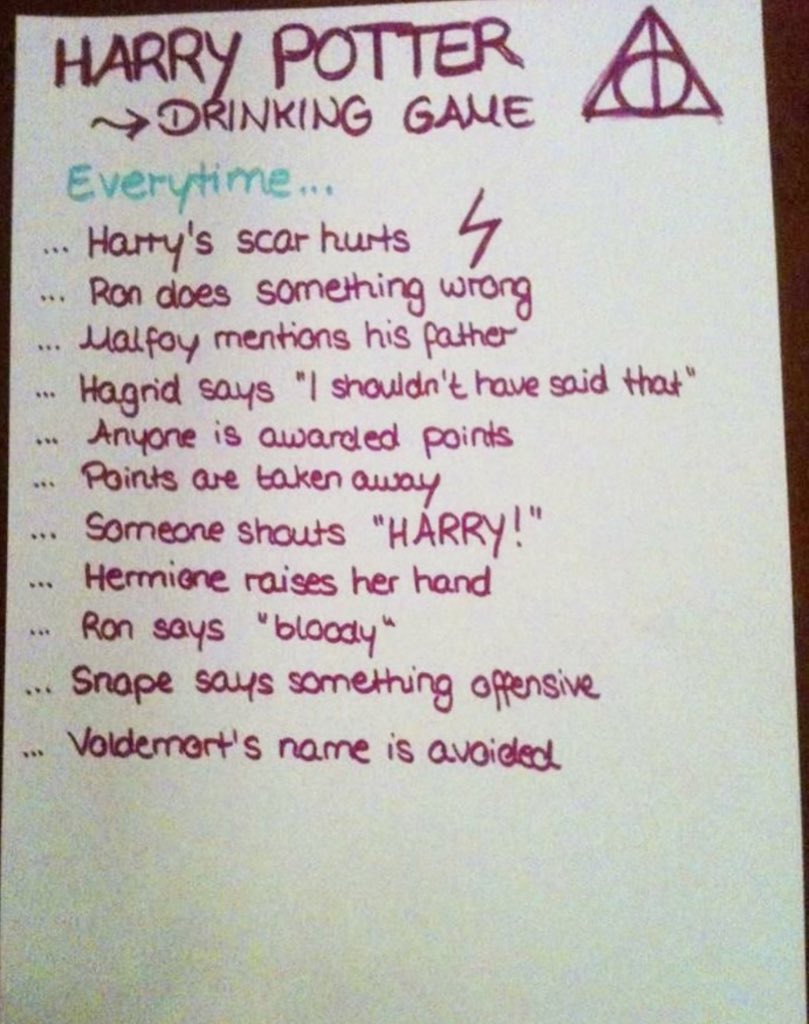 HARRY POTTER
→ DRINKING GAME
Everytime...
... Harry's scar hurts
... Ron does something wrong
... Malfoy mentions his father
... Hagrid says "I shouldn't have said that"
... Anyone is awarded points
... Points are taken away
... Someone shouts "HARRY!"
... Hermione raises her hand
... Ron says "bloody"
... Snape says something offensive
... Voldemort's name is avoided